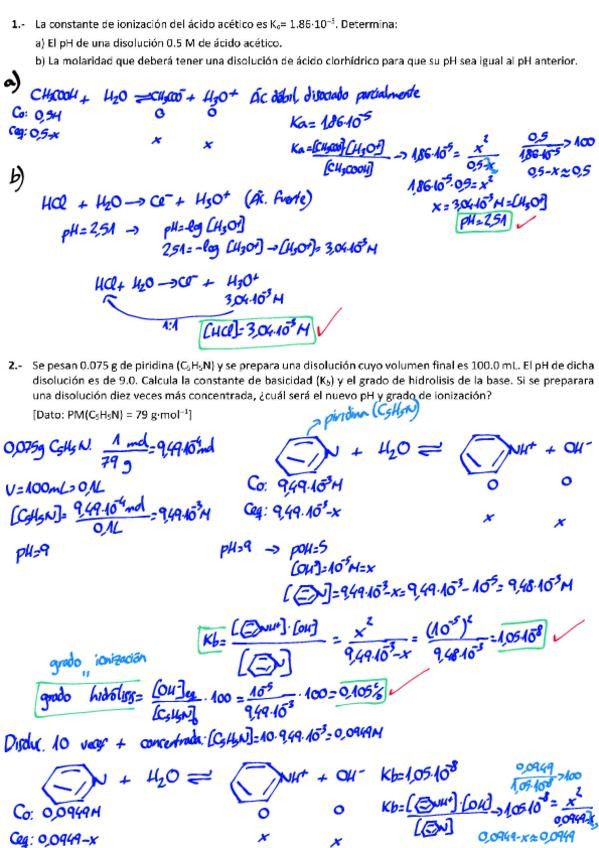 1.- La constante de ionización del ácido acético es Ka= 1.86·10⁻⁵. Determina:
a) El pH de una disolución 0.5 M de ácido acético.
b) La molaridad que deberá tener una disolución de ácido clorhídrico para que su pH sea igual al pH anterior.
a)
CH₃COOH + H₂O ⇌ CH₃COO⁻ + H₃O⁺ Ác débil, disociado parcialmente
Co: 0,5M 0 0
Ceq: 0,5-x x x
Ka=1,86·10⁻⁵
Ka=[CH₃COO⁻]·[H₃O⁺]/[CH₃COOH] → 1,86·10⁻⁵ = x²/0,5-x
0,5/1,86·10⁻⁵ >100
0,5-x≈0,5
1,86·10⁻⁵·0,5=x²
x=3,04·10⁻³M=[H₃O⁺]
pH=2,51 ✓
b)
HCl + H₂O → Cl⁻ + H₃O⁺ (Ác. Fuerte)
pH=2,51 → pH=-log [H₃O⁺]
2,51=-log [H₃O⁺] → [H₃O⁺]=3,04·10⁻³M
HCl + H₂O → Cl⁻ + H₃O⁺
3,04·10⁻³M
1:1
[HCl]=3,04·10⁻³M ✓
2.- Se pesan 0.075 g de piridina (C₅H₅N) y se prepara una disolución cuyo volumen final es 100.0 mL. El pH de dicha
disolución es de 9.0. Calcula la constante de basicidad (Kb) y el grado de hidrolisis de la base. Si se preparara
una disolución diez veces más concentrada, ¿cuál será el nuevo pH y grado de ionización?
[Dato: PM(C₅H₅N) = 79 g·mol⁻¹]
piridina (C₅H₅N)
0,075g C₅H₅N · 1 mol/79 g =9,49·10⁻⁴mol
N + H₂O ⇌ NH⁺ + OH⁻
V=100mL=0,1L
Co: 9,49·10⁻³M 0 0
[C₅H₅N]= 9,49·10⁻⁴mol/0,1L =9,49·10⁻³M
Ceq: 9,49·10⁻³-x x x
pH=9
pH=9 → pOH=5
[OH⁻]=10⁻⁵M=x
[N]=9,49·10⁻³-x=9,49·10⁻³-10⁻⁵=9,48·10⁻³M
Kb= [NH⁺]·[OH⁻]/[N] = x²/9,49·10⁻³-x = (10⁻⁵)²/9,48·10⁻³ =1,05·10⁻⁸ ✓
grado ionización
"
grado hidrólisis= [OH⁻]eq/[C₅H₅N]₀ ·100= 10⁻⁵/9,49·10⁻³ ·100=0,105% ✓
Disoluc. 10 veces + concentrada: [C₅H₅N]=10·9,49·10⁻³=0,0949M
N + H₂O ⇌ NH⁺ + OH⁻
Co: 0,0949M 0 0
Ceq: 0,0949-x x x
Kb=1,05·10⁻⁸
0,0949/1,05·10⁻⁸ >100
Kb= [NH⁺]·[OH⁻]/[N] → 1,05·10⁻⁸= x²/0,0949-x
0,0949-x≈0,0949